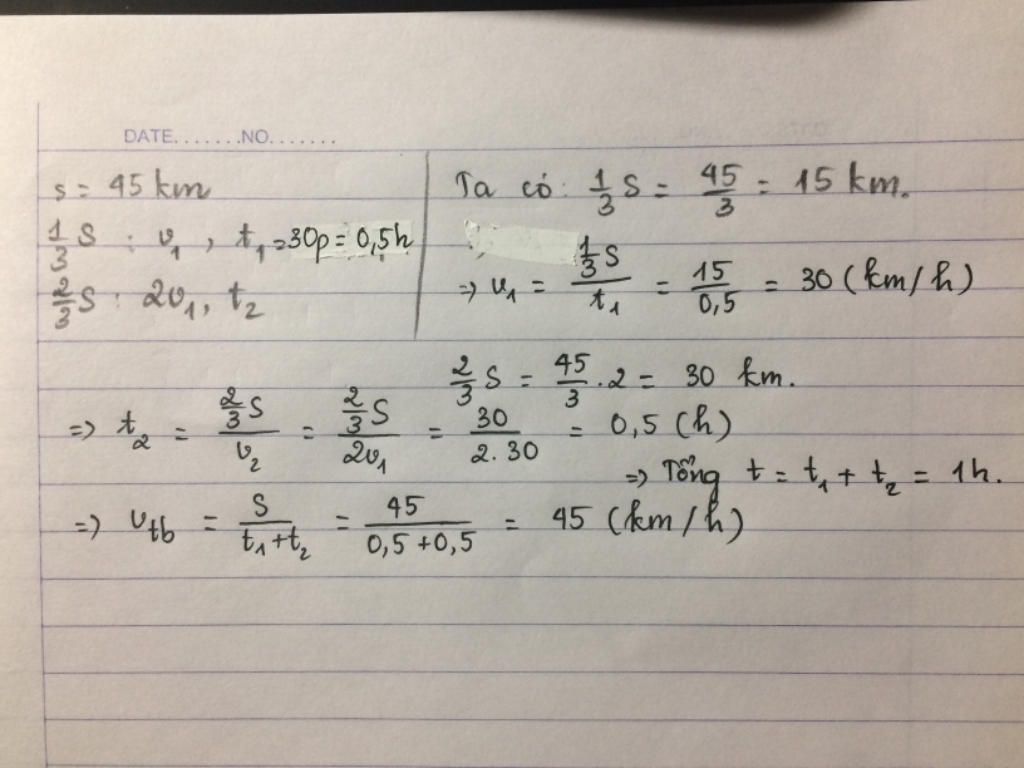 DATE.......NO.......
s = 45 km
1/3 S : v₁ , t₁ = 30p = 0,5h
2/3 S : 2v₁, t₂
Ta có: 1/3 S = 45/3 = 15 km.
=> v₁ = (1/3 S)/t₁ = 15/0,5 = 30 (km/h)
2/3 S = 45/3 . 2 = 30 km.
=> t₂ = (2/3 S)/v₂ = (2/3 S)/2v₁ = 30/2.30 = 0,5 (h)
=> Tổng t = t₁ + t₂ = 1h.
=> vtb = S/t₁+t₂ = 45/0,5+0,5 = 45 (km/h)